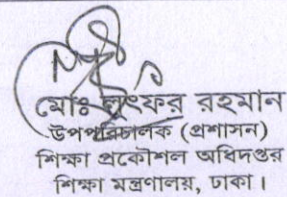 মোঃ লুৎফর রহমান
উপপরিচালক (প্রশাসন)
শিক্ষা প্রকৌশল অধিদপ্তর
শিক্ষা মন্ত্রণালয়, ঢাকা।